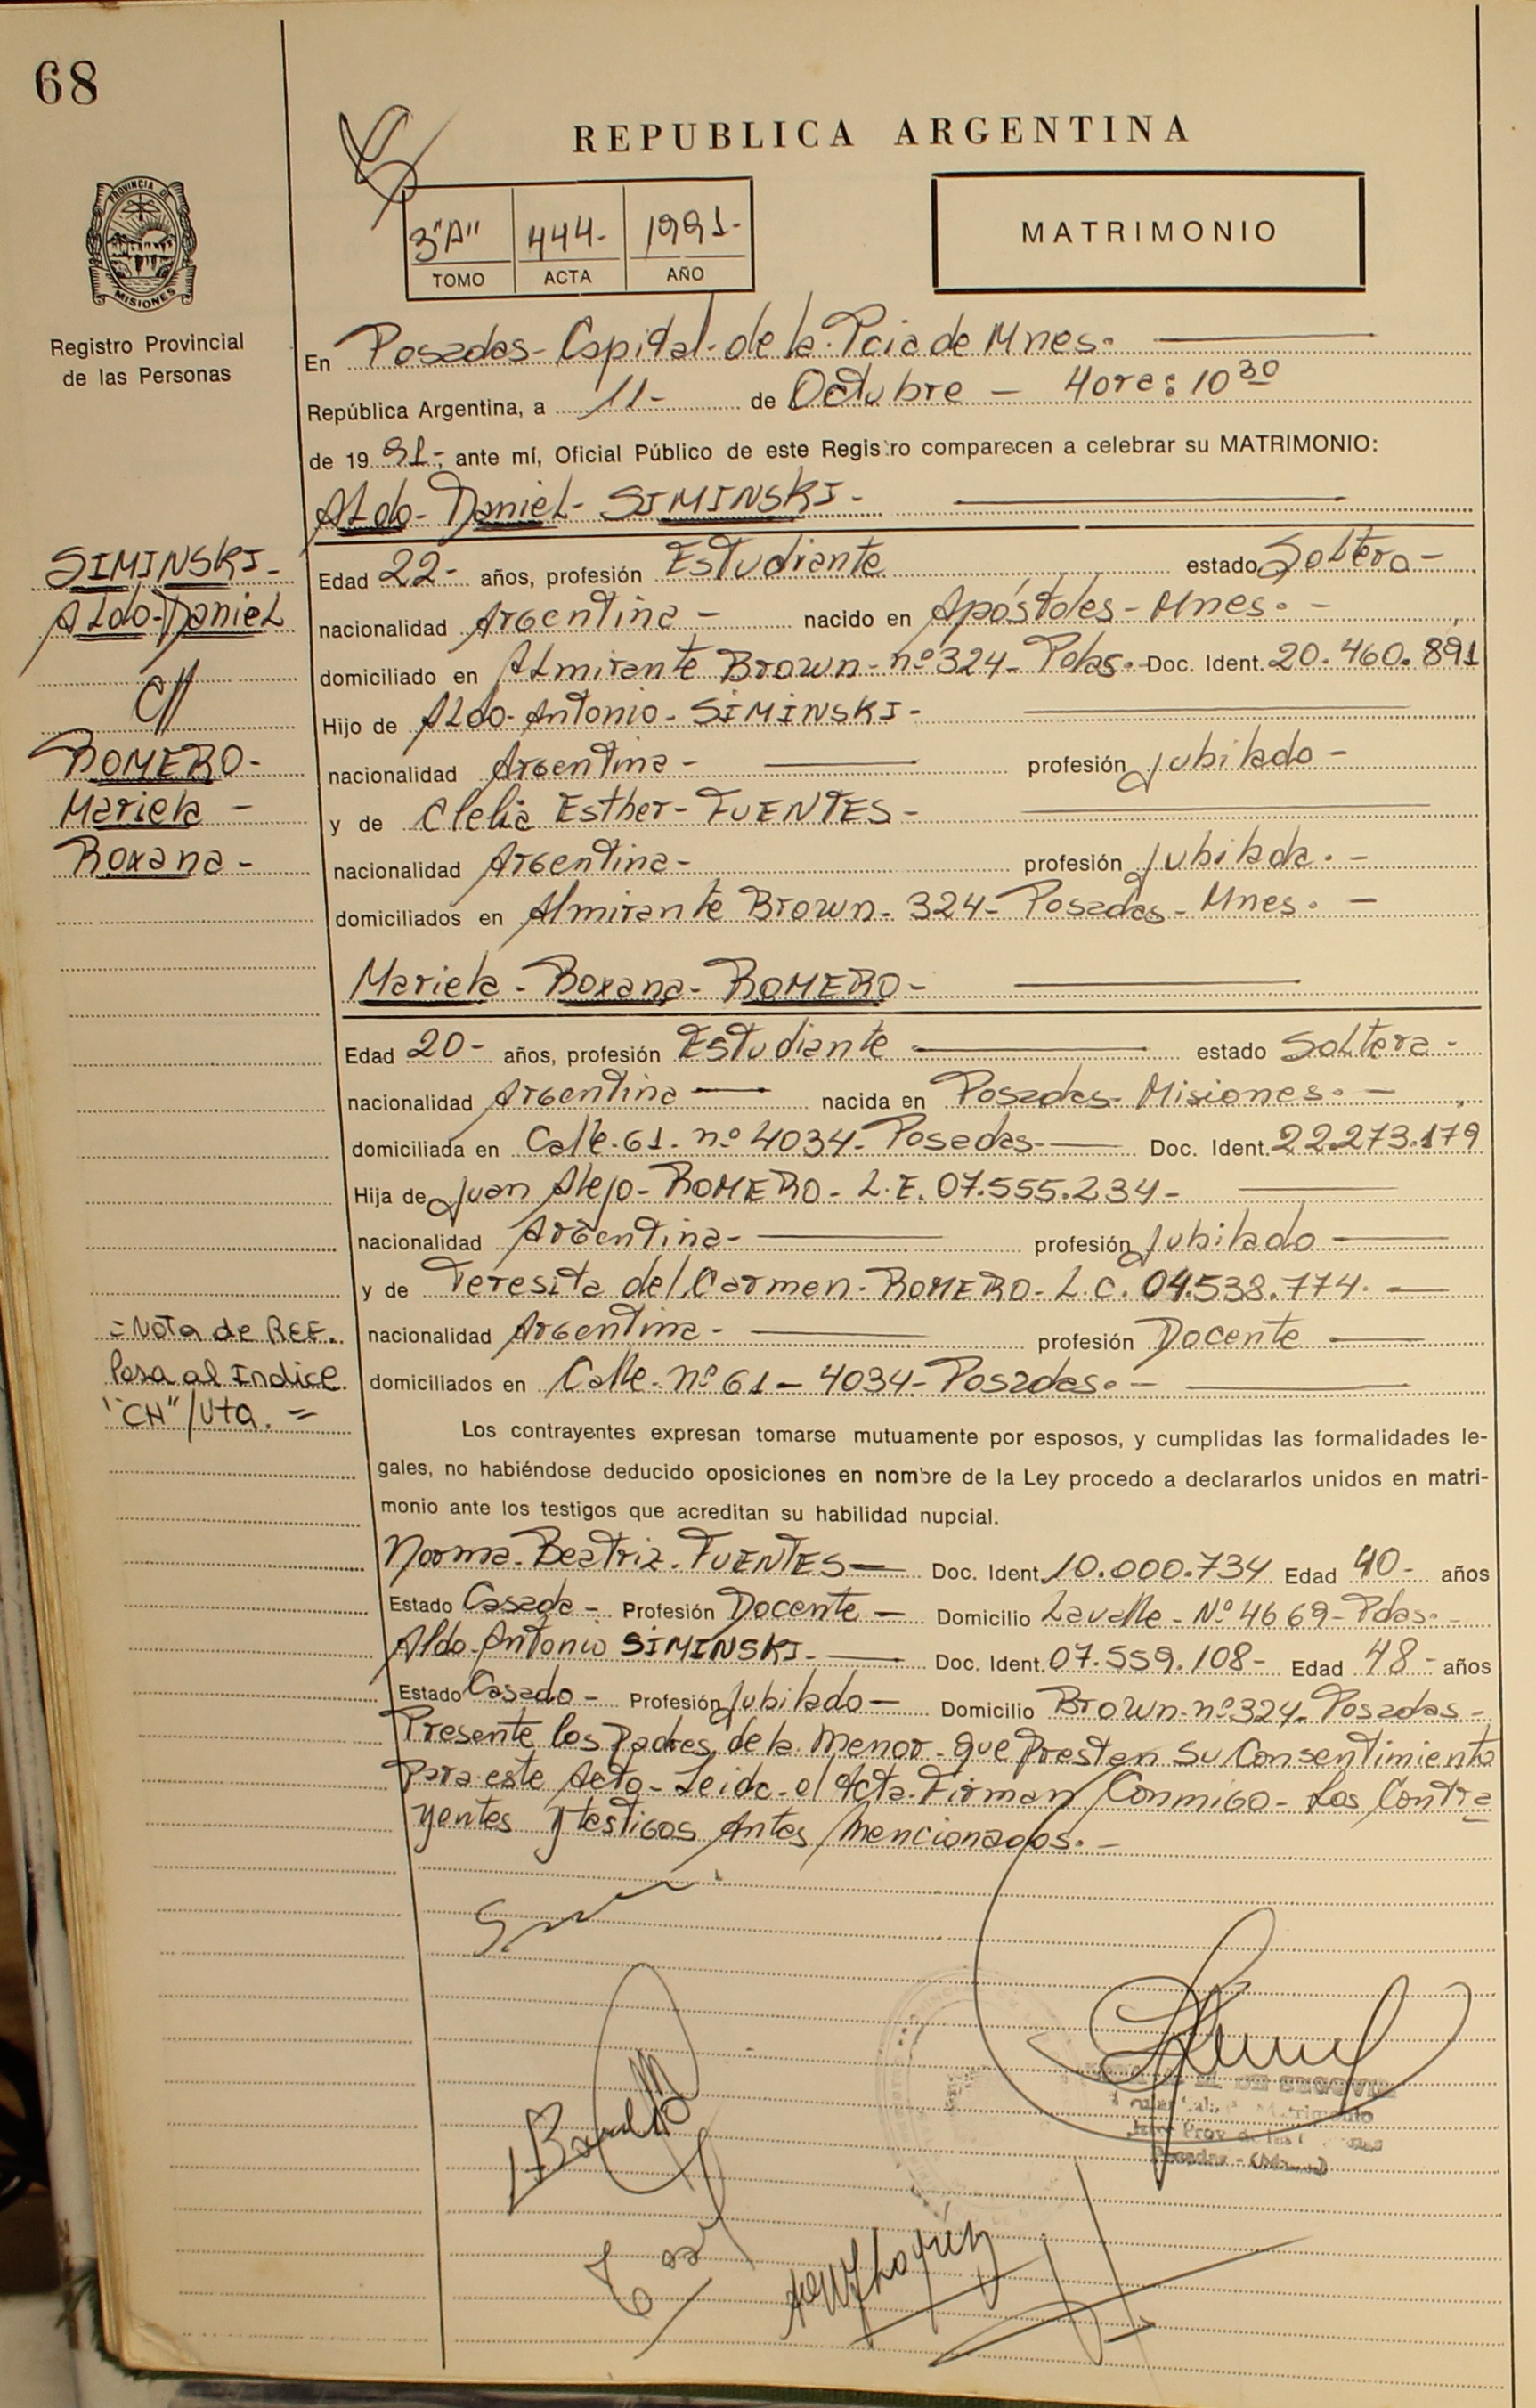 68
REPUBLICA ARGENTINA
PROVINCIA DE
MISIONES
Registro Provincial
de las Personas
3"A" 444- 1991-
TOMO ACTA AÑO
MATRIMONIO
En Posadas-Capital-de la-Pcia de Mnes.
República Argentina, a 11- de Octubre - Hora: 10 30
de 1991-, ante mí, Oficial Público de este Registro comparecen a celebrar su MATRIMONIO:
Aldo-Daniel-SIMINSKI-
SIMINSKI-
Aldo-Daniel
c//
ROMERO-
Mariela-
Roxana-
Edad 22- años, profesión Estudiante estado Soltero-
nacionalidad Argentina- nacido en Apóstoles-Mnes.-
domiciliado en Almirante Brown-nº324-Pdas.-Doc. Ident. 20.460.891
Hijo de Aldo-Antonio-SIMINSKI-
nacionalidad Argentina- profesión Jubilado-
y de Clelia Esther-FUENTES-
nacionalidad Argentina- profesión Jubilada.-
domiciliados en Almirante Brown-324-Posadas-Mnes.-
Mariela-Roxana-ROMERO-
Edad 20- años, profesión Estudiante estado Soltera-
nacionalidad Argentina nacida en Posadas-Misiones.-
domiciliada en Calle-61-nº4034-Posadas- Doc. Ident. 22.273.179
Hija de Juan Alejo-ROMERO-L.E.07.555.234-
nacionalidad Argentina- profesión Jubilado
y de Teresita del Carmen-ROMERO-L.C.04.538.774.
nacionalidad Argentina- profesión Docente
domiciliados en Calle-nº61-4034-Posadas.-
=Nota de REF.
Pasa al Indice
"CH"/Vta.=
Los contrayentes expresan tomarse mutuamente por esposos, y cumplidas las formalidades le-
gales, no habiéndose deducido oposiciones en nombre de la Ley procedo a declararlos unidos en matri-
monio ante los testigos que acreditan su habilidad nupcial.
Norma-Beatriz-FUENTES- Doc. Ident. 10.000.734 Edad 40- años
Estado Casada- Profesión Docente- Domicilio Lavalle-Nº4669-Pdas.-
Aldo-Antonio SIMINSKI- Doc. Ident. 07.559.108- Edad 48- años
Estado Casado- Profesión Jubilado- Domicilio Brown-nº324-Posadas-
Presente los Padres de la menor-que Prestan Su Consentimiento
Para este Acto-Leida-el Acta-Firman Conmigo-Los Contra
yentes y testigos Antes Mencionados.-
DE SEGOVIA
Matrimonio
Posadas - (Mnes)